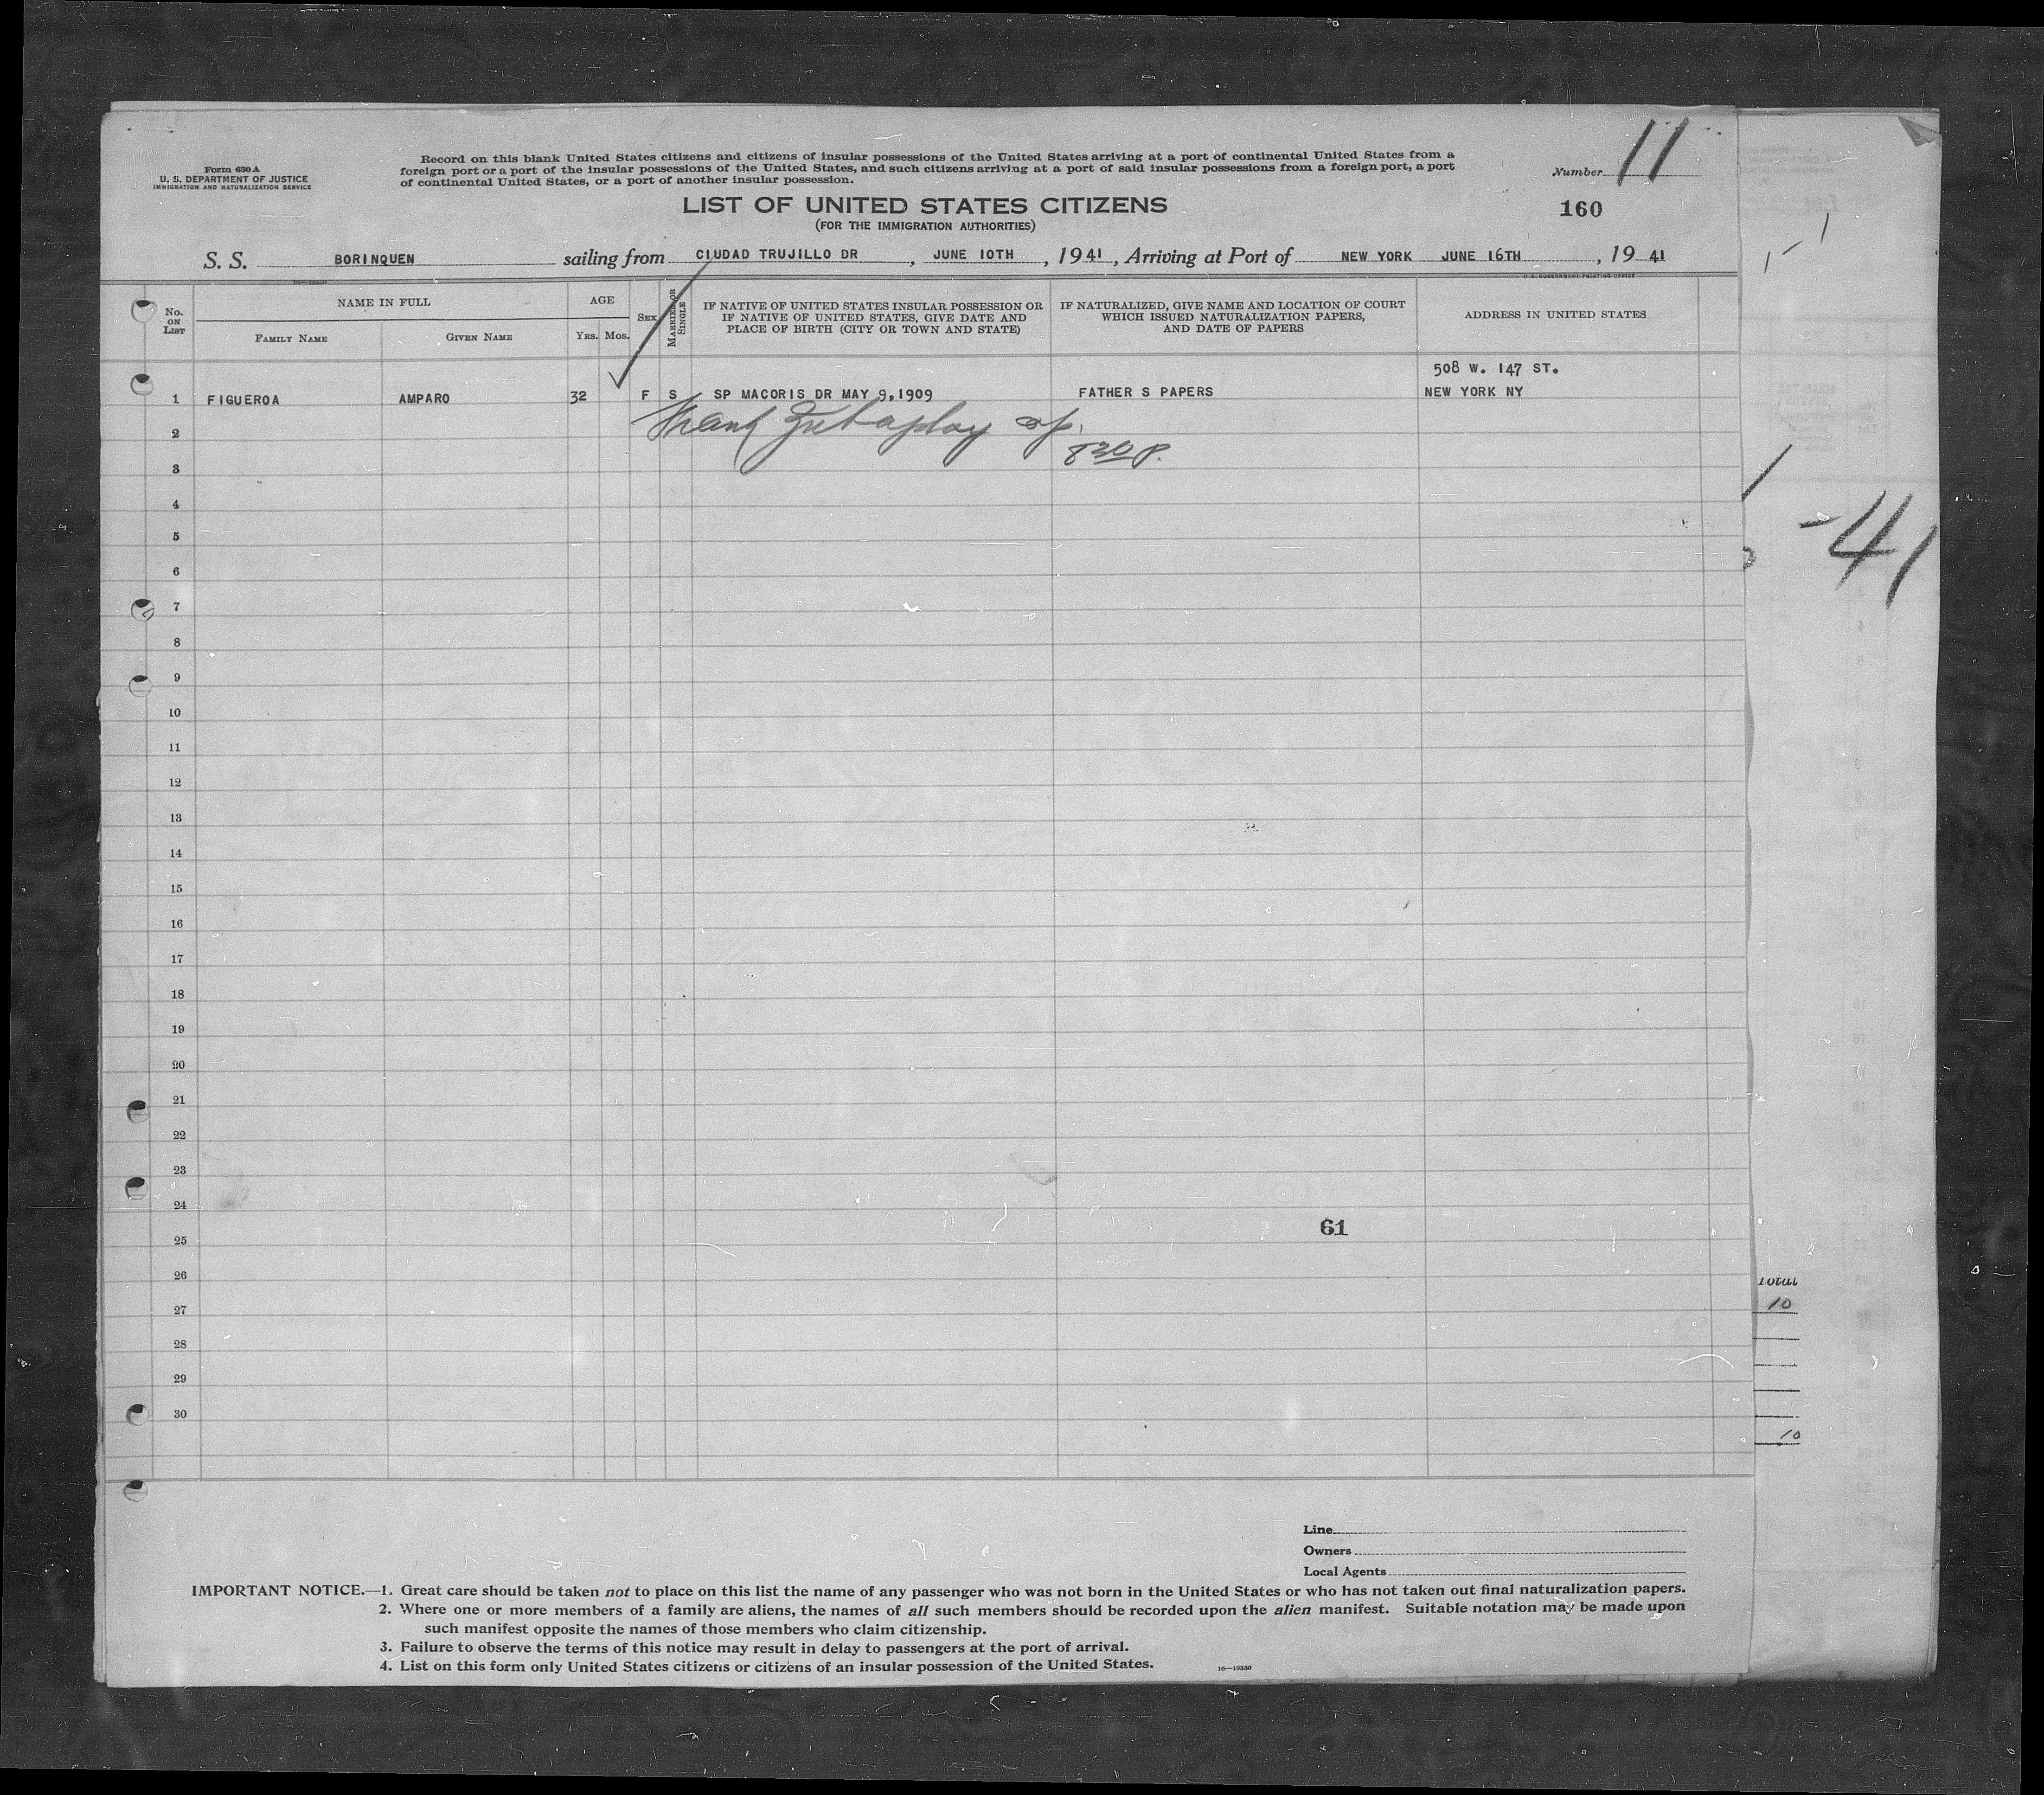 Form 630 A
U. S. DEPARTMENT OF JUSTICE
IMMIGRATION AND NATURALIZATION SERVICE
Record on this blank United States citizens and citizens of insular possessions of the United States arriving at a port of continental United States from a
foreign port or a port of the insular possessions of the United States, and such citizens arriving at a port of said insular possessions from a foreign port, a port
of continental United States, or a port of another insular possession.
Number 11
160
LIST OF UNITED STATES CITIZENS
(FOR THE IMMIGRATION AUTHORITIES)
S. S. BORINQUEN sailing from CIUDAD TRUJILLO DR, JUNE 10TH, 1941, Arriving at Port of NEW YORK JUNE 16TH, 19 41
U.S. GOVERNMENT PRINTING OFFICE
No. ON LIST
NAME IN FULL
FAMILY NAME
GIVEN NAME
AGE
YRS. MOS.
SEX
MARRIED OR SINGLE
IF NATIVE OF UNITED STATES INSULAR POSSESSION OR
IF NATIVE OF UNITED STATES, GIVE DATE AND
PLACE OF BIRTH (CITY OR TOWN AND STATE)
IF NATURALIZED, GIVE NAME AND LOCATION OF COURT
WHICH ISSUED NATURALIZATION PAPERS,
AND DATE OF PAPERS
ADDRESS IN UNITED STATES
508 W. 147 ST.
1 FIGUEROA AMPARO 32 F S SP MACORIS DR MAY 9,1909 FATHER S PAPERS NEW YORK NY
2 Frank
830 P.
3
4
5
6
7
8
9
10
11
12
13
14
15
16
17
18
19
20
21
22
23
24
61
25
26
27
28
29
30
-41
Total
10
10
Line
Owners
Local Agents
IMPORTANT NOTICE.—1. Great care should be taken not to place on this list the name of any passenger who was not born in the United States or who has not taken out final naturalization papers.
2. Where one or more members of a family are aliens, the names of all such members should be recorded upon the alien manifest. Suitable notation may be made upon
such manifest opposite the names of those members who claim citizenship.
3. Failure to observe the terms of this notice may result in delay to passengers at the port of arrival.
4. List on this form only United States citizens or citizens of an insular possession of the United States.